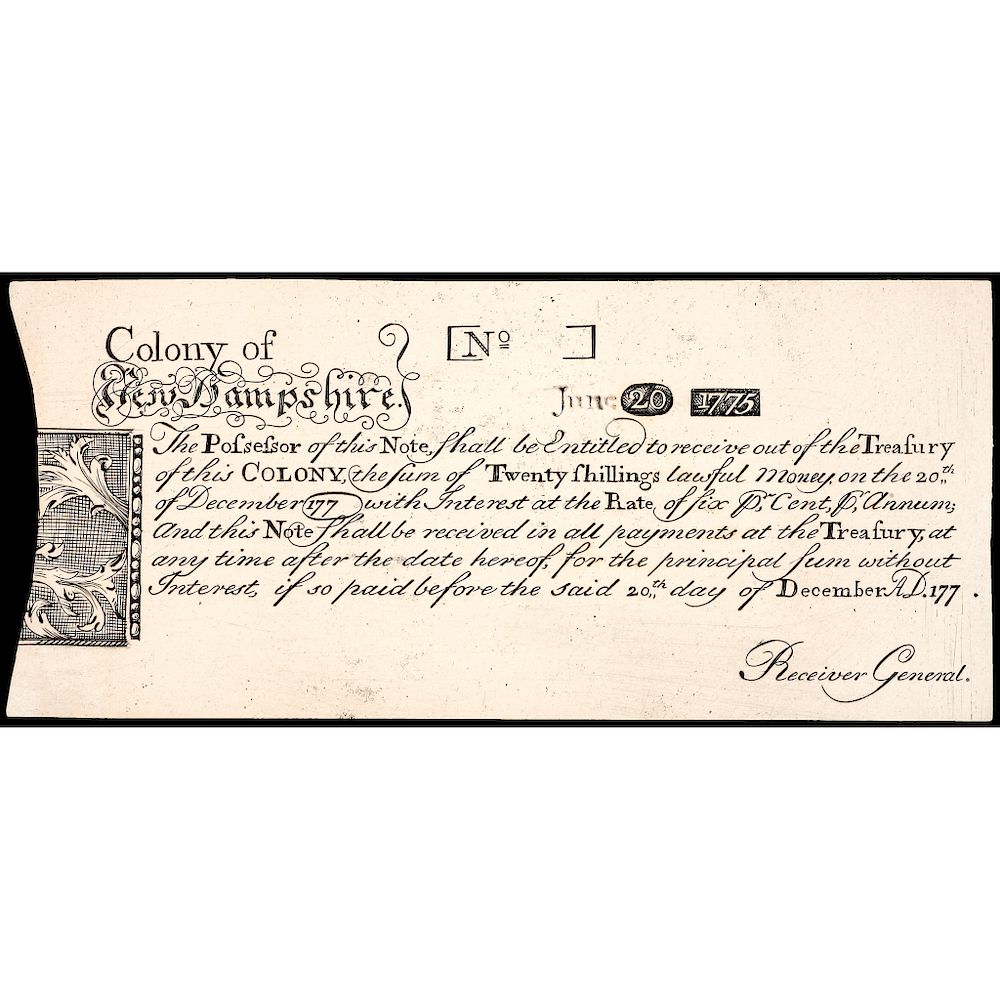 Colony of
New Hampshire.
[Nº ]
June 20 1775
The Poſseſsor of this Note, ſhall be Entitled to receive out of the Treaſury
of this COLONY, the ſum of Twenty ſhillings lawful Money, on the 20.th
of December 177 with Interest at the Rate, of ſix ⅌r, Cent, ⅌r, Annum;
And this Note ſhall be received in all payments at the Treaſury, at
any time after the date hereof, for the principal ſum without
Interest, if so paid before the said 20.th day of December A.D. 177 .
Receiver General.